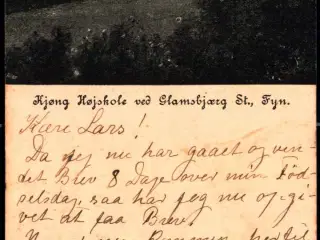 Kjøng Højskole ved Glamsbjærg St., Fyn.
Kære Lars!
Da jeg nu har gaaet og ven-
det Brev 8 Dage over min Föd-
selsdag, saa har jeg nu opgi-
vet at faa Brev.